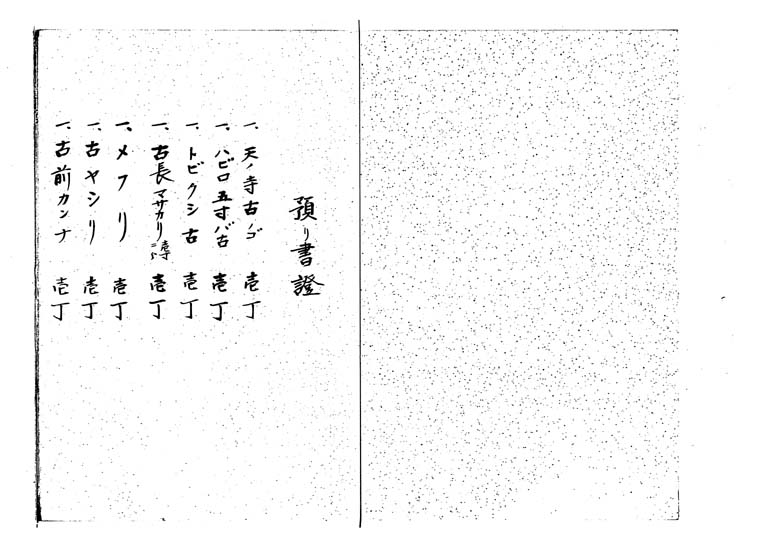 預り書證
一、天ノ寺古ノゴ 壱丁
一、ハビロ五寸バ古 壱丁
一、トビクシ古 壱丁
一、古長マサカリ 壱丁
一、メフリ 壱丁
一、古ヤシリ 壱丁
一、古前カンナ 壱丁